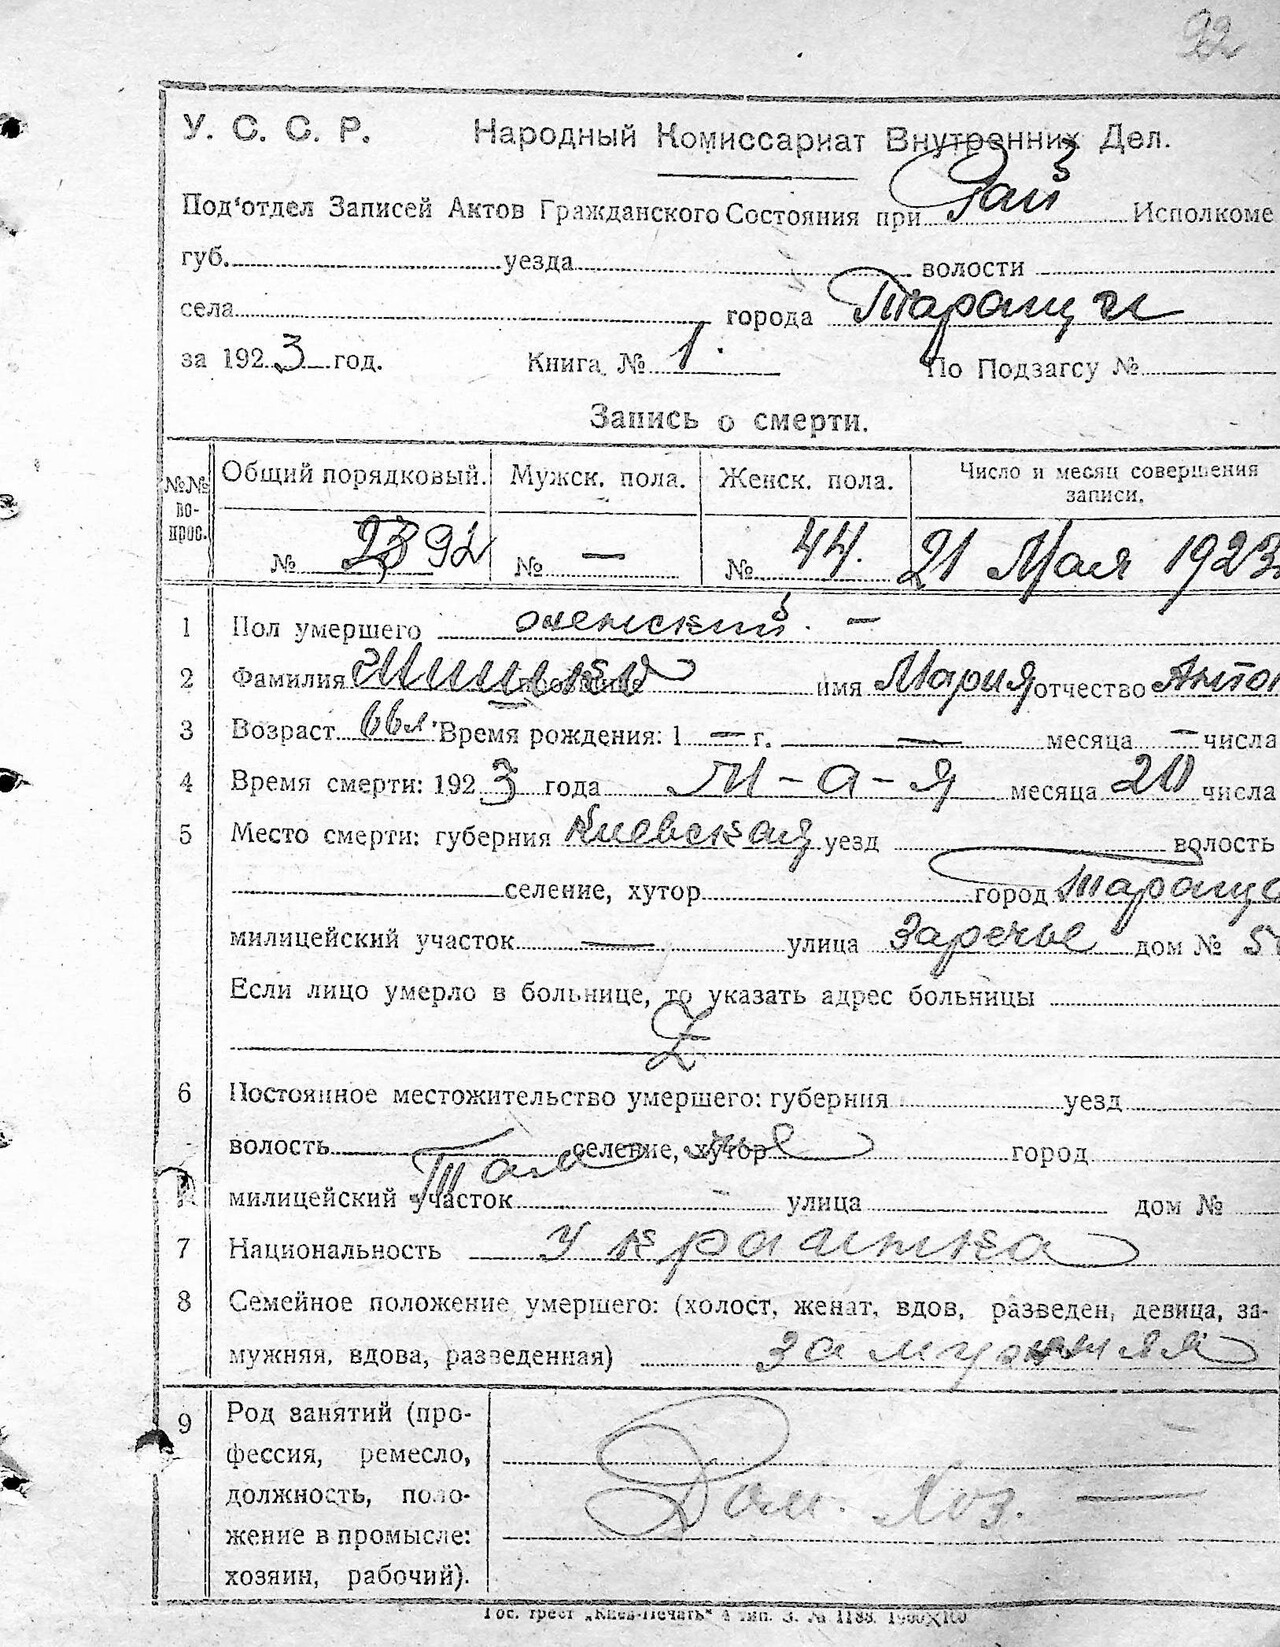 92
У. С. С. Р. Народный Комиссариат Внутренних Дел.
Под'отдел Записей Актов Гражданского Состояния при Рай Исполкоме
губ. уезда волости
села города Таращи
за 1923 год. Книга № 1. По Подзагсу №
Запись о смерти.
№№ вопрос. Общий порядковый. Мужск. пола. Женск. пола. Число и месяц совершения записи.
№ 92 № — № 44. 21 Мая 1923
1 Пол умершего женский. —
2 Фамилия имя Мария отчество Антон
3 Возраст 66 л. Время рождения: 1 — г. — месяца — числа
4 Время смерти: 1923 года м-а-я месяца 20 числа
5 Место смерти: губерния Киевская уезд волость
селение, хутор город Тараща
милицейский участок — улица Заречье дом №
Если лицо умерло в больнице, то указать адрес больницы
Z
6 Постоянное местожительство умершего: губерния уезд
волость селение, хутор город
Там же
милицейский участок улица дом №
7 Национальность украинка
8 Семейное положение умершего: (холост, женат, вдов, разведен, девица, за-
мужняя, вдова, разведенная) замужняя
9 Род занятий (про-
фессия, ремесло,
должность, поло- Дом. Хоз. —
жение в промысле:
хозяин, рабочий).
Гос. трест „Киев-Печать" 4 тип. З. № 1188.